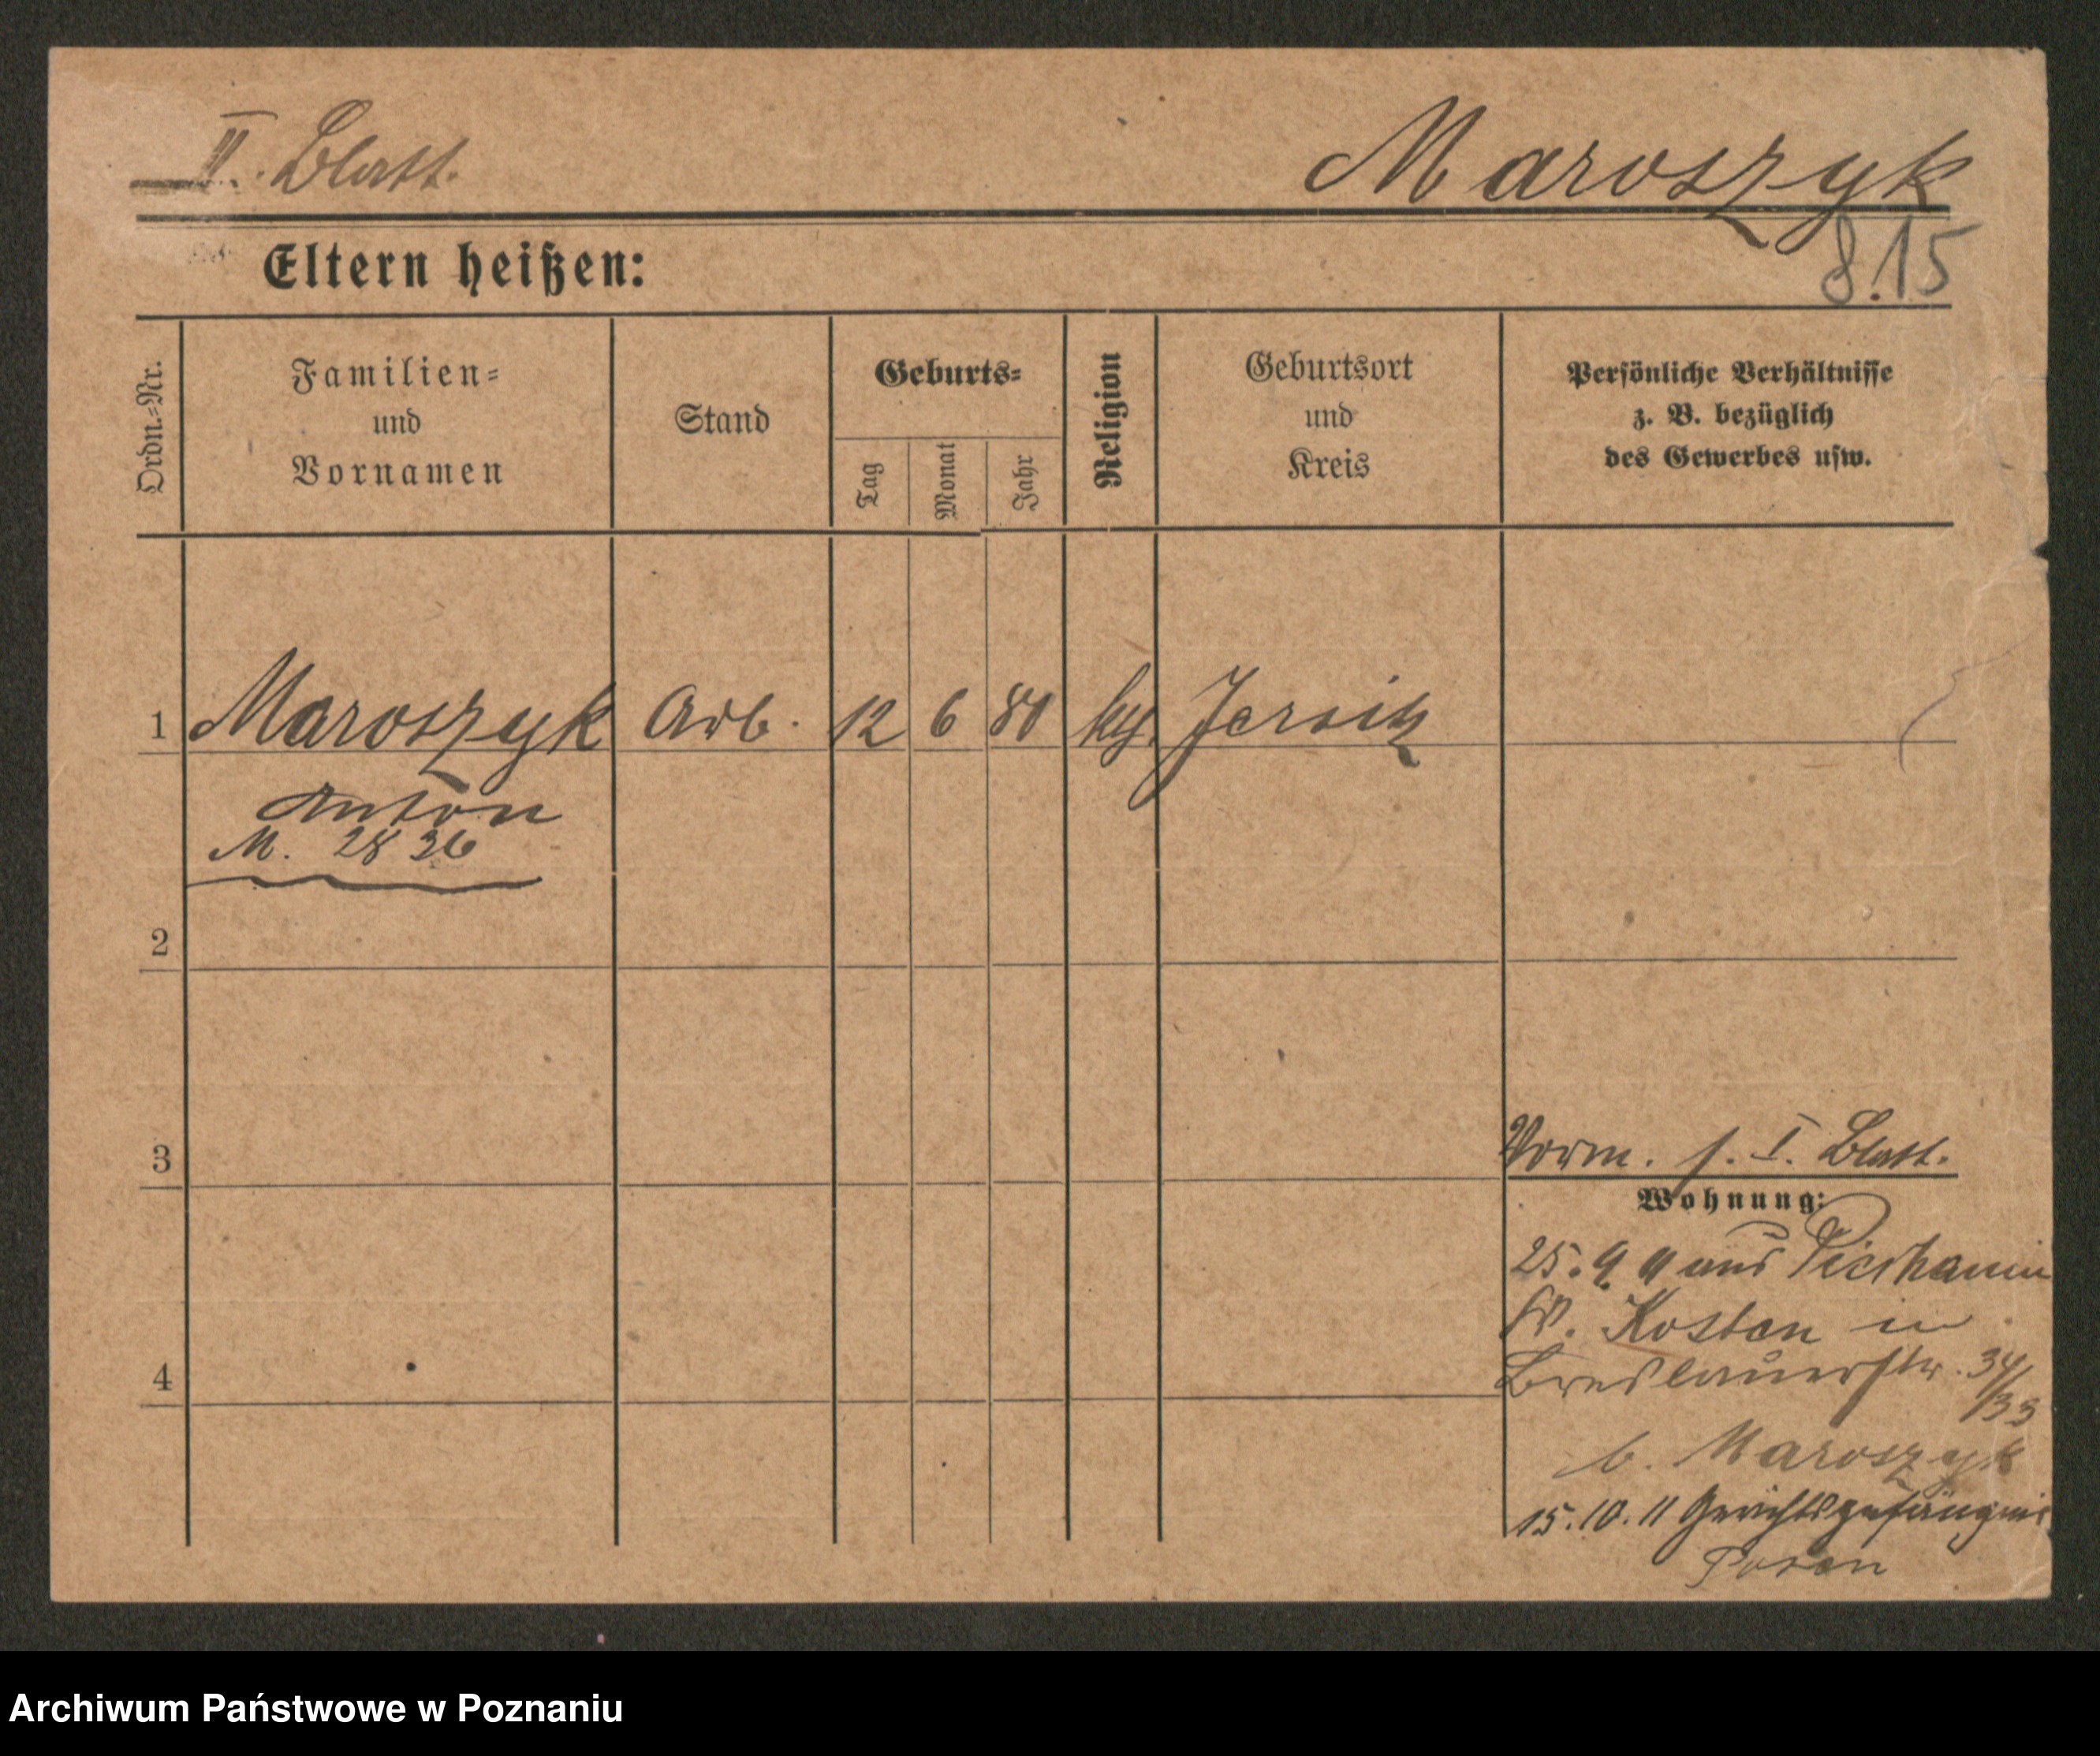 II. Blatt.
Maroszyk
8.15
Eltern heißen:
Ordn.-Nr.
Familien-
und
Vornamen
Stand
Geburts-
Tag
Monat
Jahr
Religion
Geburtsort
und
Kreis
Persönliche Verhältnisse
z. B. bezüglich
des Gewerbes usw.
1 Maroszyk Arb. 12 6 80 Jersitz
Anton
M. 2836
2
3
4
Vorm. s. I. Blatt.
Wohnung:
25. 9. 11 aus
Kr. Kosten in
Breslauerstr. 34/33
b. Maroszyk
15. 10. 11 Gerichtsgefängnis
Posen
Archiwum Państwowe w Poznaniu